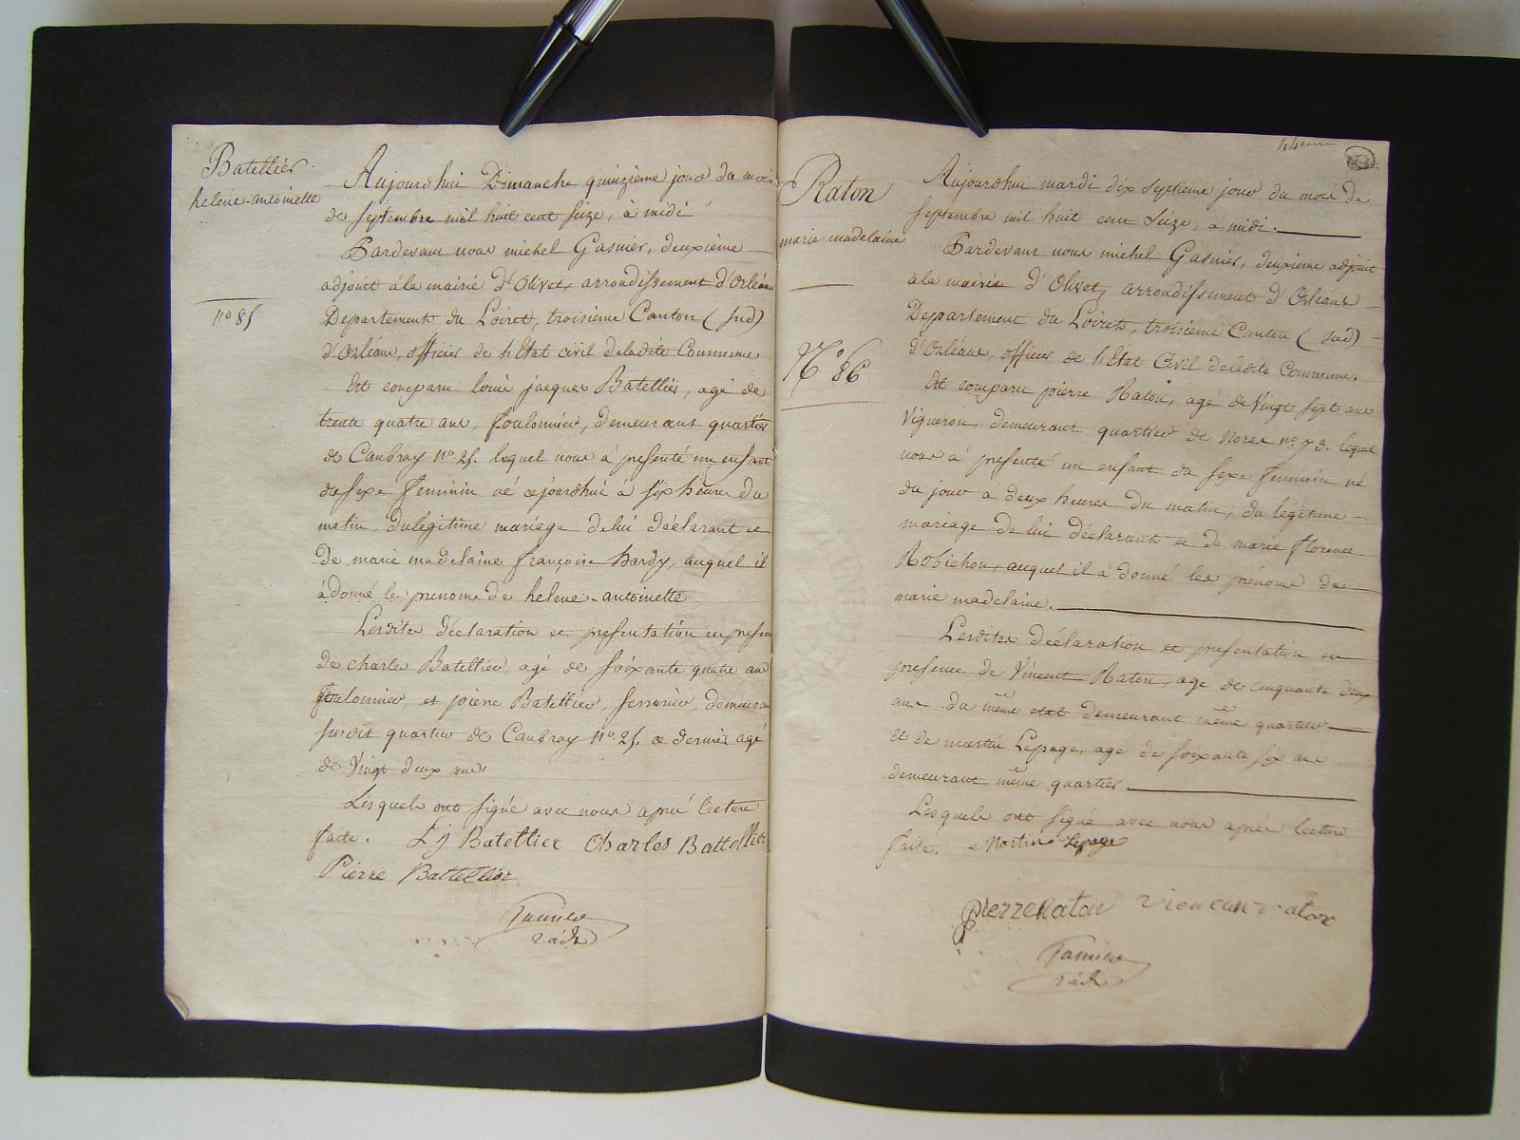 Batellier
helene-antoinette
n° 85
Aujourdhui Dimanche quinzieme jour du mois
de septembre mil huit cent seize, à midi
Pardevant nous michel Gasnier, deuxième
adjoint à la mairie d'Olivet, arrondissement d'Orléans
Departement du Loiret, troisieme Canton (sud)
d'Orléans, officier de l'Etat civil deladite Commune
Est comparu louis jacques Batellier, agé de
trente quatre ans, foulonnier, demeurant quartier
de Caubray n° 25. lequel nous à presenté un enfant
du sexe feminin né cejourdhui à six heures du
matin du légitime mariage de lui déclarant et
De marie madelaine françoise hardy, auquel il
à donné les prenoms de helene-antoinette
Lesdites déclaration et presentation en presence
de charles Batellier agé de soixante quatre ans
foulonnier et pierre Batellier, serrurier, demeurant
susdit quartier de Caubray n° 25. ce dernier agé
de vingt deux ans
Lesquels ont signé avec nous aprés lecture
faite. L j Batellier Charles Battellier
Pierre Battellier
Gasnier
adjt
Raton
marie madelaine
N° 86
Aujourdhui mardi dix septieme jour du mois de
septembre mil huit cent seize, a midi.
Pardevant nous michel Gasnier, deuxieme adjoint
à la mairie d'Olivet, arrondissement d'Orleans
Departement du Loiret, troisieme Canton (sud)
d'Orléans, officier de l'Etat Civil deladite Commune.
Est comparu pierre Raton, agé de vingt sept ans
vigneron demeurant quartier de n° 73. lequel
nous a presenté un enfant du sexe feminin né
du jour a deux heures du matin, du légitime
mariage de lui déclarant et de marie florence
Robichon, auquel il a donné les prénoms de
marie madelaine.
Lesdites déclaration et presentation en
presence de Vincent Raton, age de cinquante deux
ans du même etat demeurant même quartier
et de martin Lepage, age de soixante six ans
demeurant même quartier.
Lesquels ont signé avec nous apres lecture
faite. Martin Lepage
pierre Raton vincent raton
Gasnier
adjt